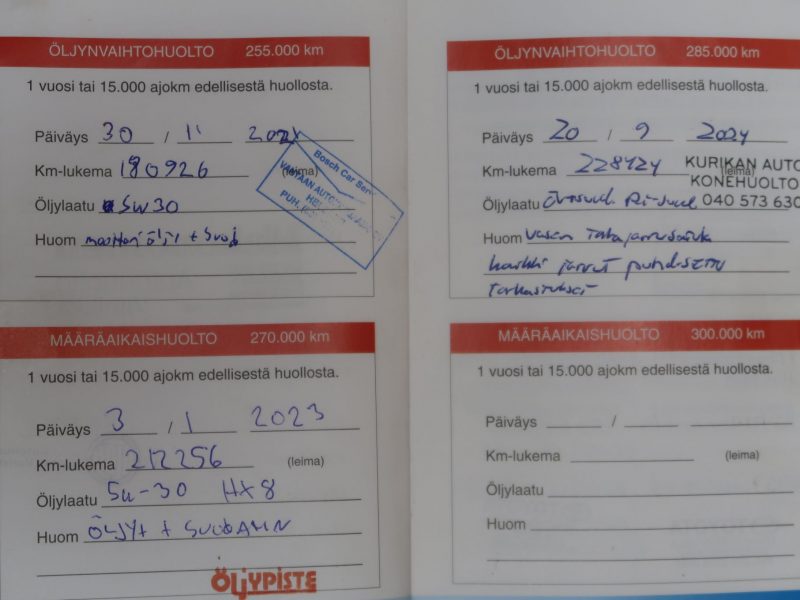 ÖLJYNVAIHTOHUOLTO 255.000 km
1 vuosi tai 15.000 ajokm edellisestä huollosta.
Päiväys 30 / 11
Km-lukema 180926 (leima)
Bosch Car
PUH.
Öljylaatu 5W30
Huom moottoriöljy + suod
MÄÄRÄAIKAISHUOLTO 270.000 km
1 vuosi tai 15.000 ajokm edellisestä huollosta.
Päiväys 3 / 1 2023
Km-lukema 212256 (leima)
Öljylaatu 5W-30 HX8
Huom ÖLJYT + SUODATIN
ÖLJYPISTE
ÖLJYNVAIHTOHUOLTO 285.000 km
1 vuosi tai 15.000 ajokm edellisestä huollosta.
Päiväys 20 / 9 2024
Km-lukema 228424 (leima)
KURIKAN AUTO
KONEHUOLTO
040 573 630
Öljylaatu
Huom vasen takajarrusatula
kaikki jarrut puhdistettu
tarkastukset
MÄÄRÄAIKAISHUOLTO 300.000 km
1 vuosi tai 15.000 ajokm edellisestä huollosta.
Päiväys /
Km-lukema (leima)
Öljylaatu
Huom